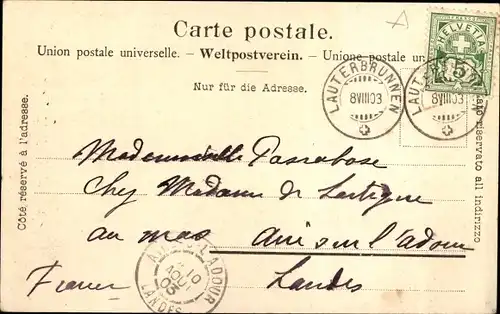 Carte postale.
Union postale universelle. – Weltpostverein. – Unione postale
Nur für die Adresse.
Côté réservé à l'adresse.
riservato all indirizzo
HELVETIA
5
LAUTERBRUNNEN
8 VIII 03
LAUTERBRUNNEN
8 VIII 03
Mademoiselle Passabose
Chez Madame de Lartigue
au mas Aire sur l'adour
France Landes
10
AOUT
03
LANDES